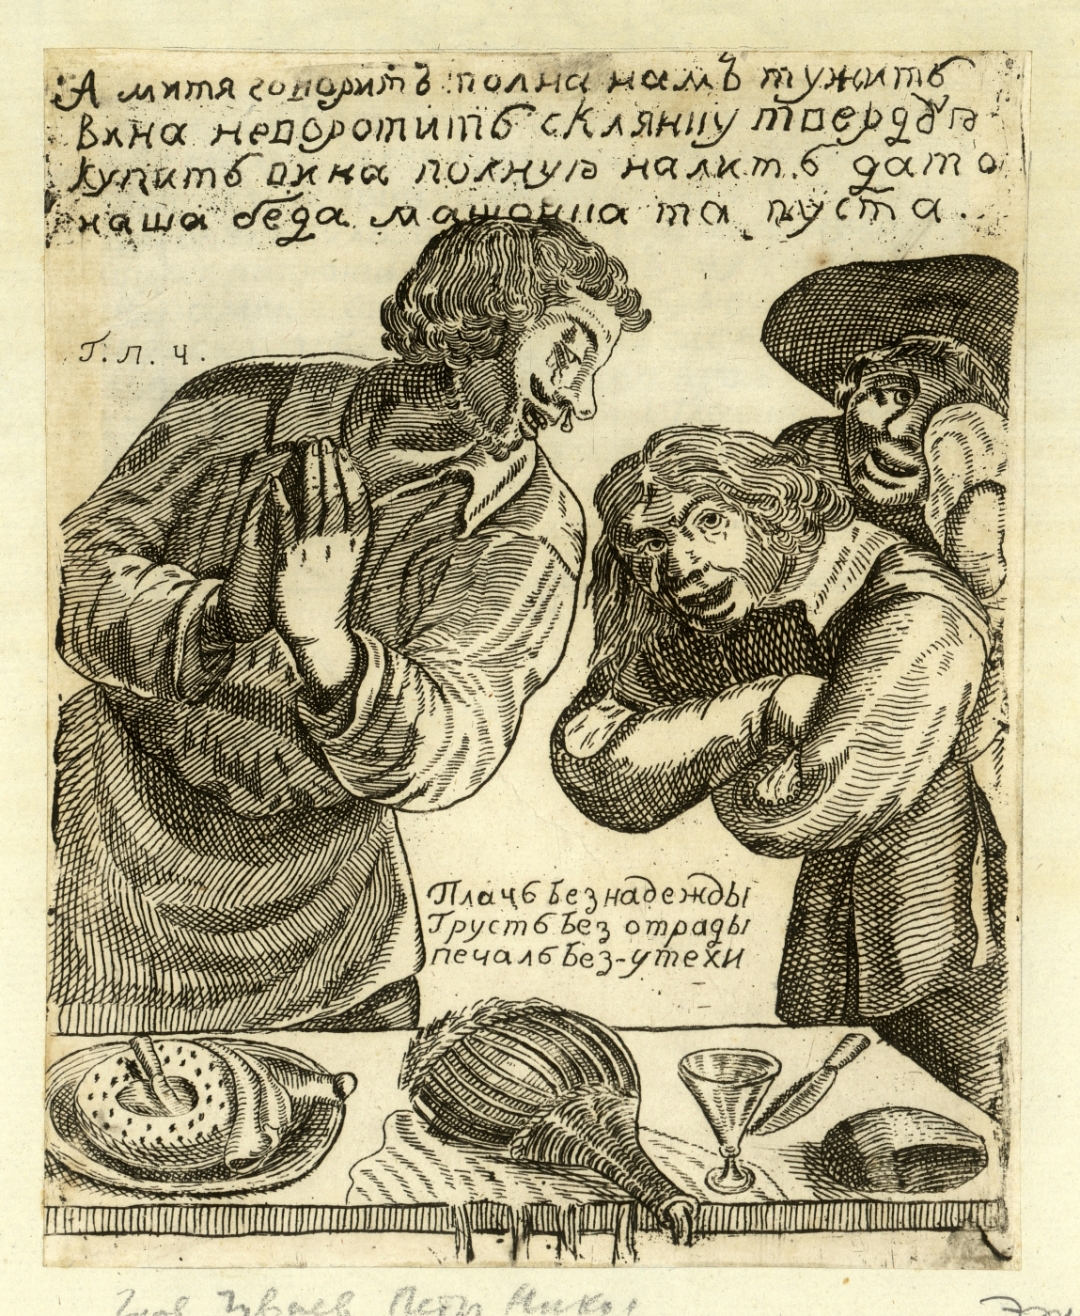 А митя говоритъ полна намъ тужить
вина неворотить скляницу твердую
купить вина полную налить дато
наша беда машонна та пуста.
Г. Л. Ч.
Плачь без надежды
Грусть без отрады
печаль без-утехи